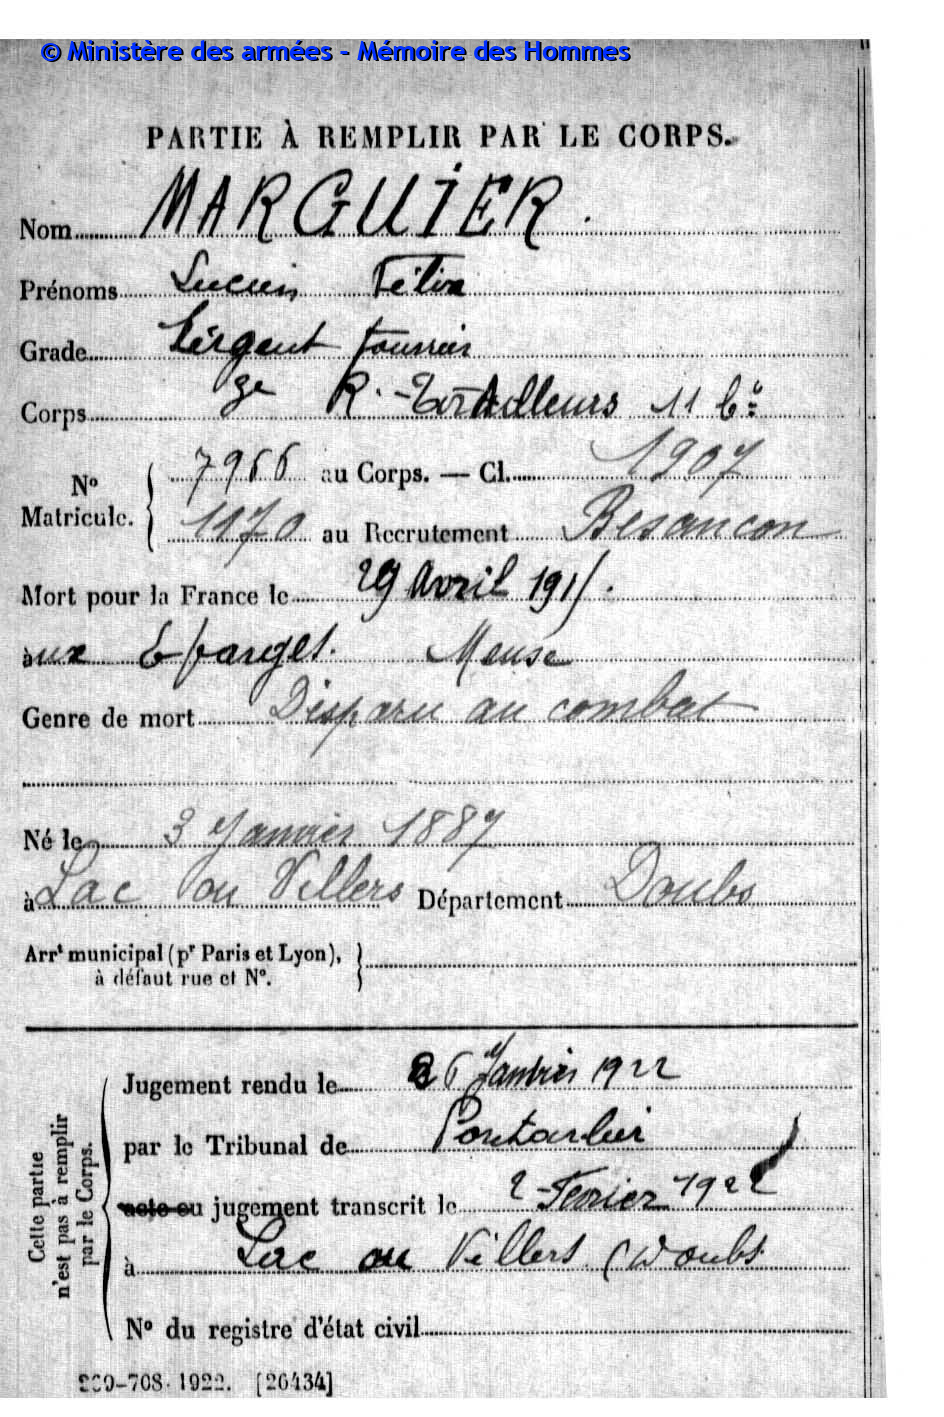 © Ministère des armées - Mémoire des Hommes
PARTIE À REMPLIR PAR LE CORPS.
Nom MARGUIER.
Prénoms Lucien Félix
Grade Sergent fourrier
Corps 3e R. Tirailleurs 11 b
No Matricule. 7966 au Corps. — Cl. 1907
1170 au Recrutement Besancon
Mort pour la France le 29 Avril 1915.
aux Eparges. Meuse
Genre de mort Disparu au combat
Né le 3 Janvier 1887
à Lac ou Villers Département Doubs
Arrt municipal (pr Paris et Lyon),
à défaut rue et No.
Cette partie n'est pas à remplir par le Corps.
Jugement rendu le 26 Janvier 1922
par le Tribunal de Pontarlier
acte ou jugement transcrit le 2 Février 1922
à Lac ou Villers (Doubs
No du registre d'état civil
-708. 1922. [26434]